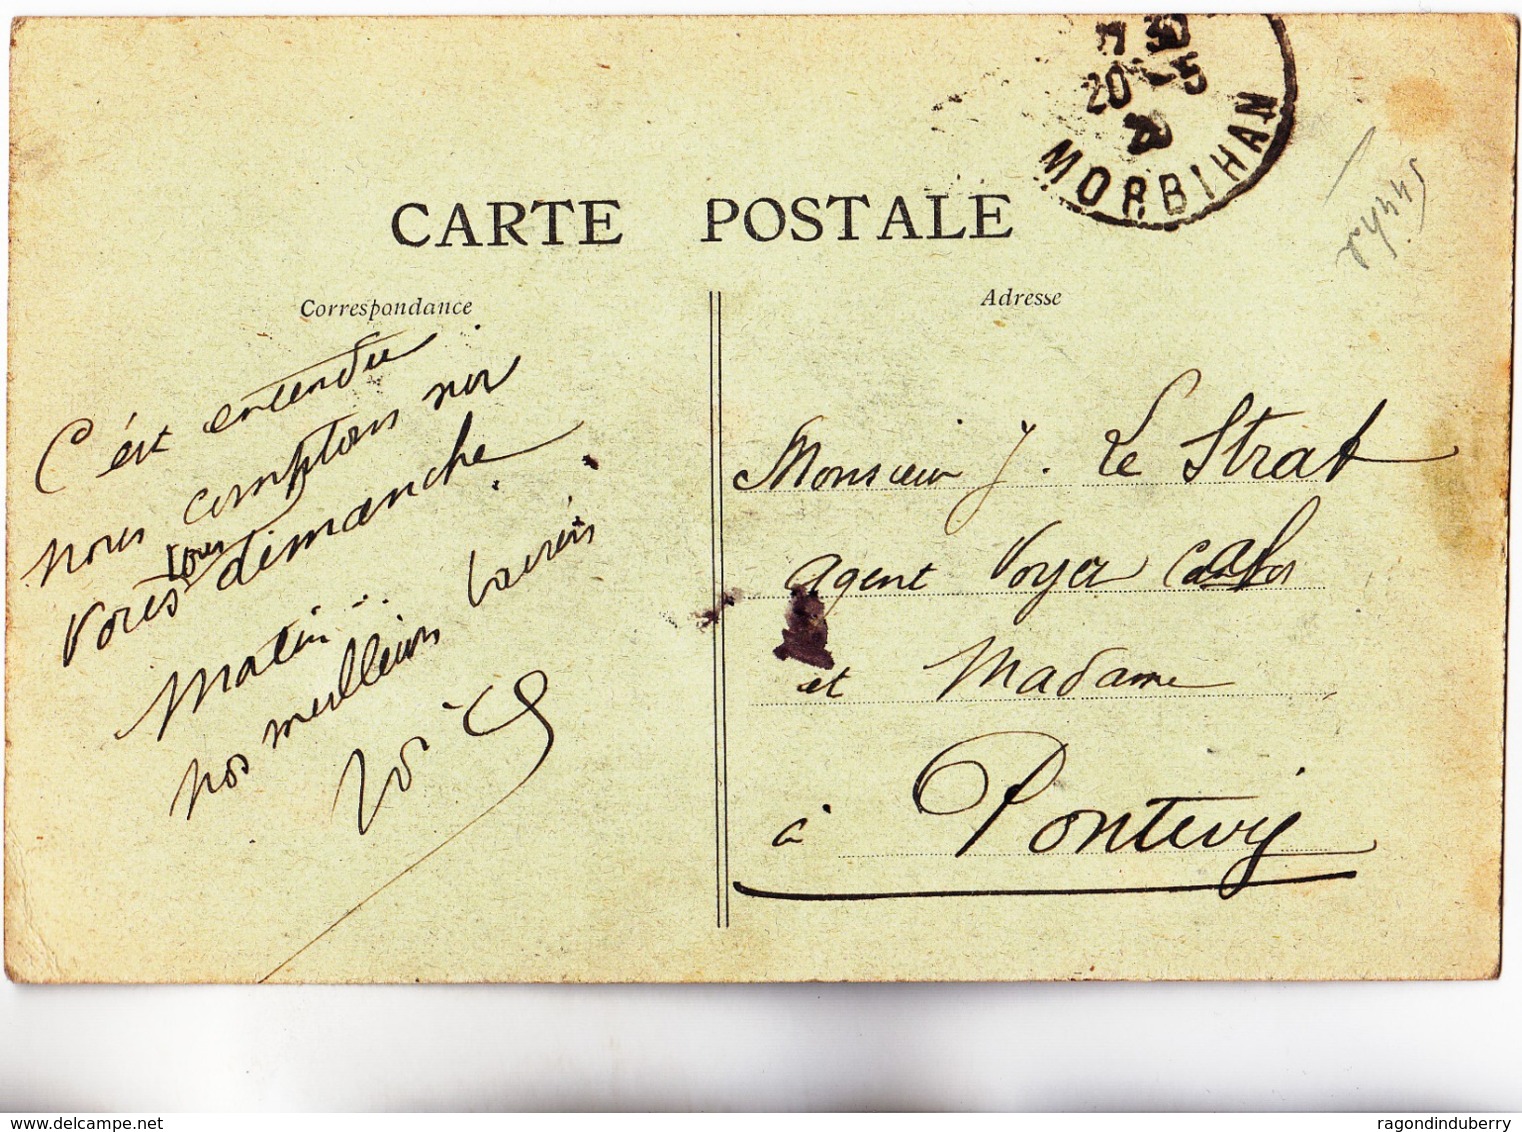 CARTE POSTALE
20 - 5
MORBIHAN
Correspondance
C'est entendu
nous comptons sur
vous tous dimanche.
Matin..
nos meilleurs baisers
Adresse
Monsieur J. Le Strat
agent Voyer
et Madame
à Pontivy
www.delcampe.net
ragondinduberry